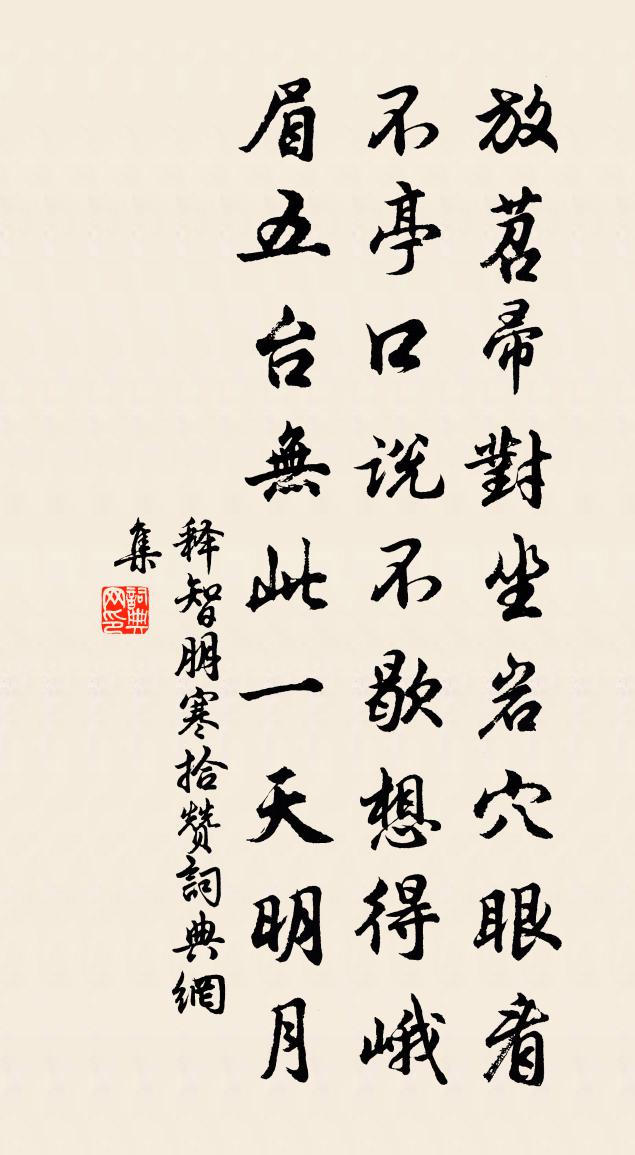 放苕帚對坐岩穴眼看
不亭口説不歇想得峨
眉五台無此一天明月
释智朋寒拾赞詞典網
集
詞典网印